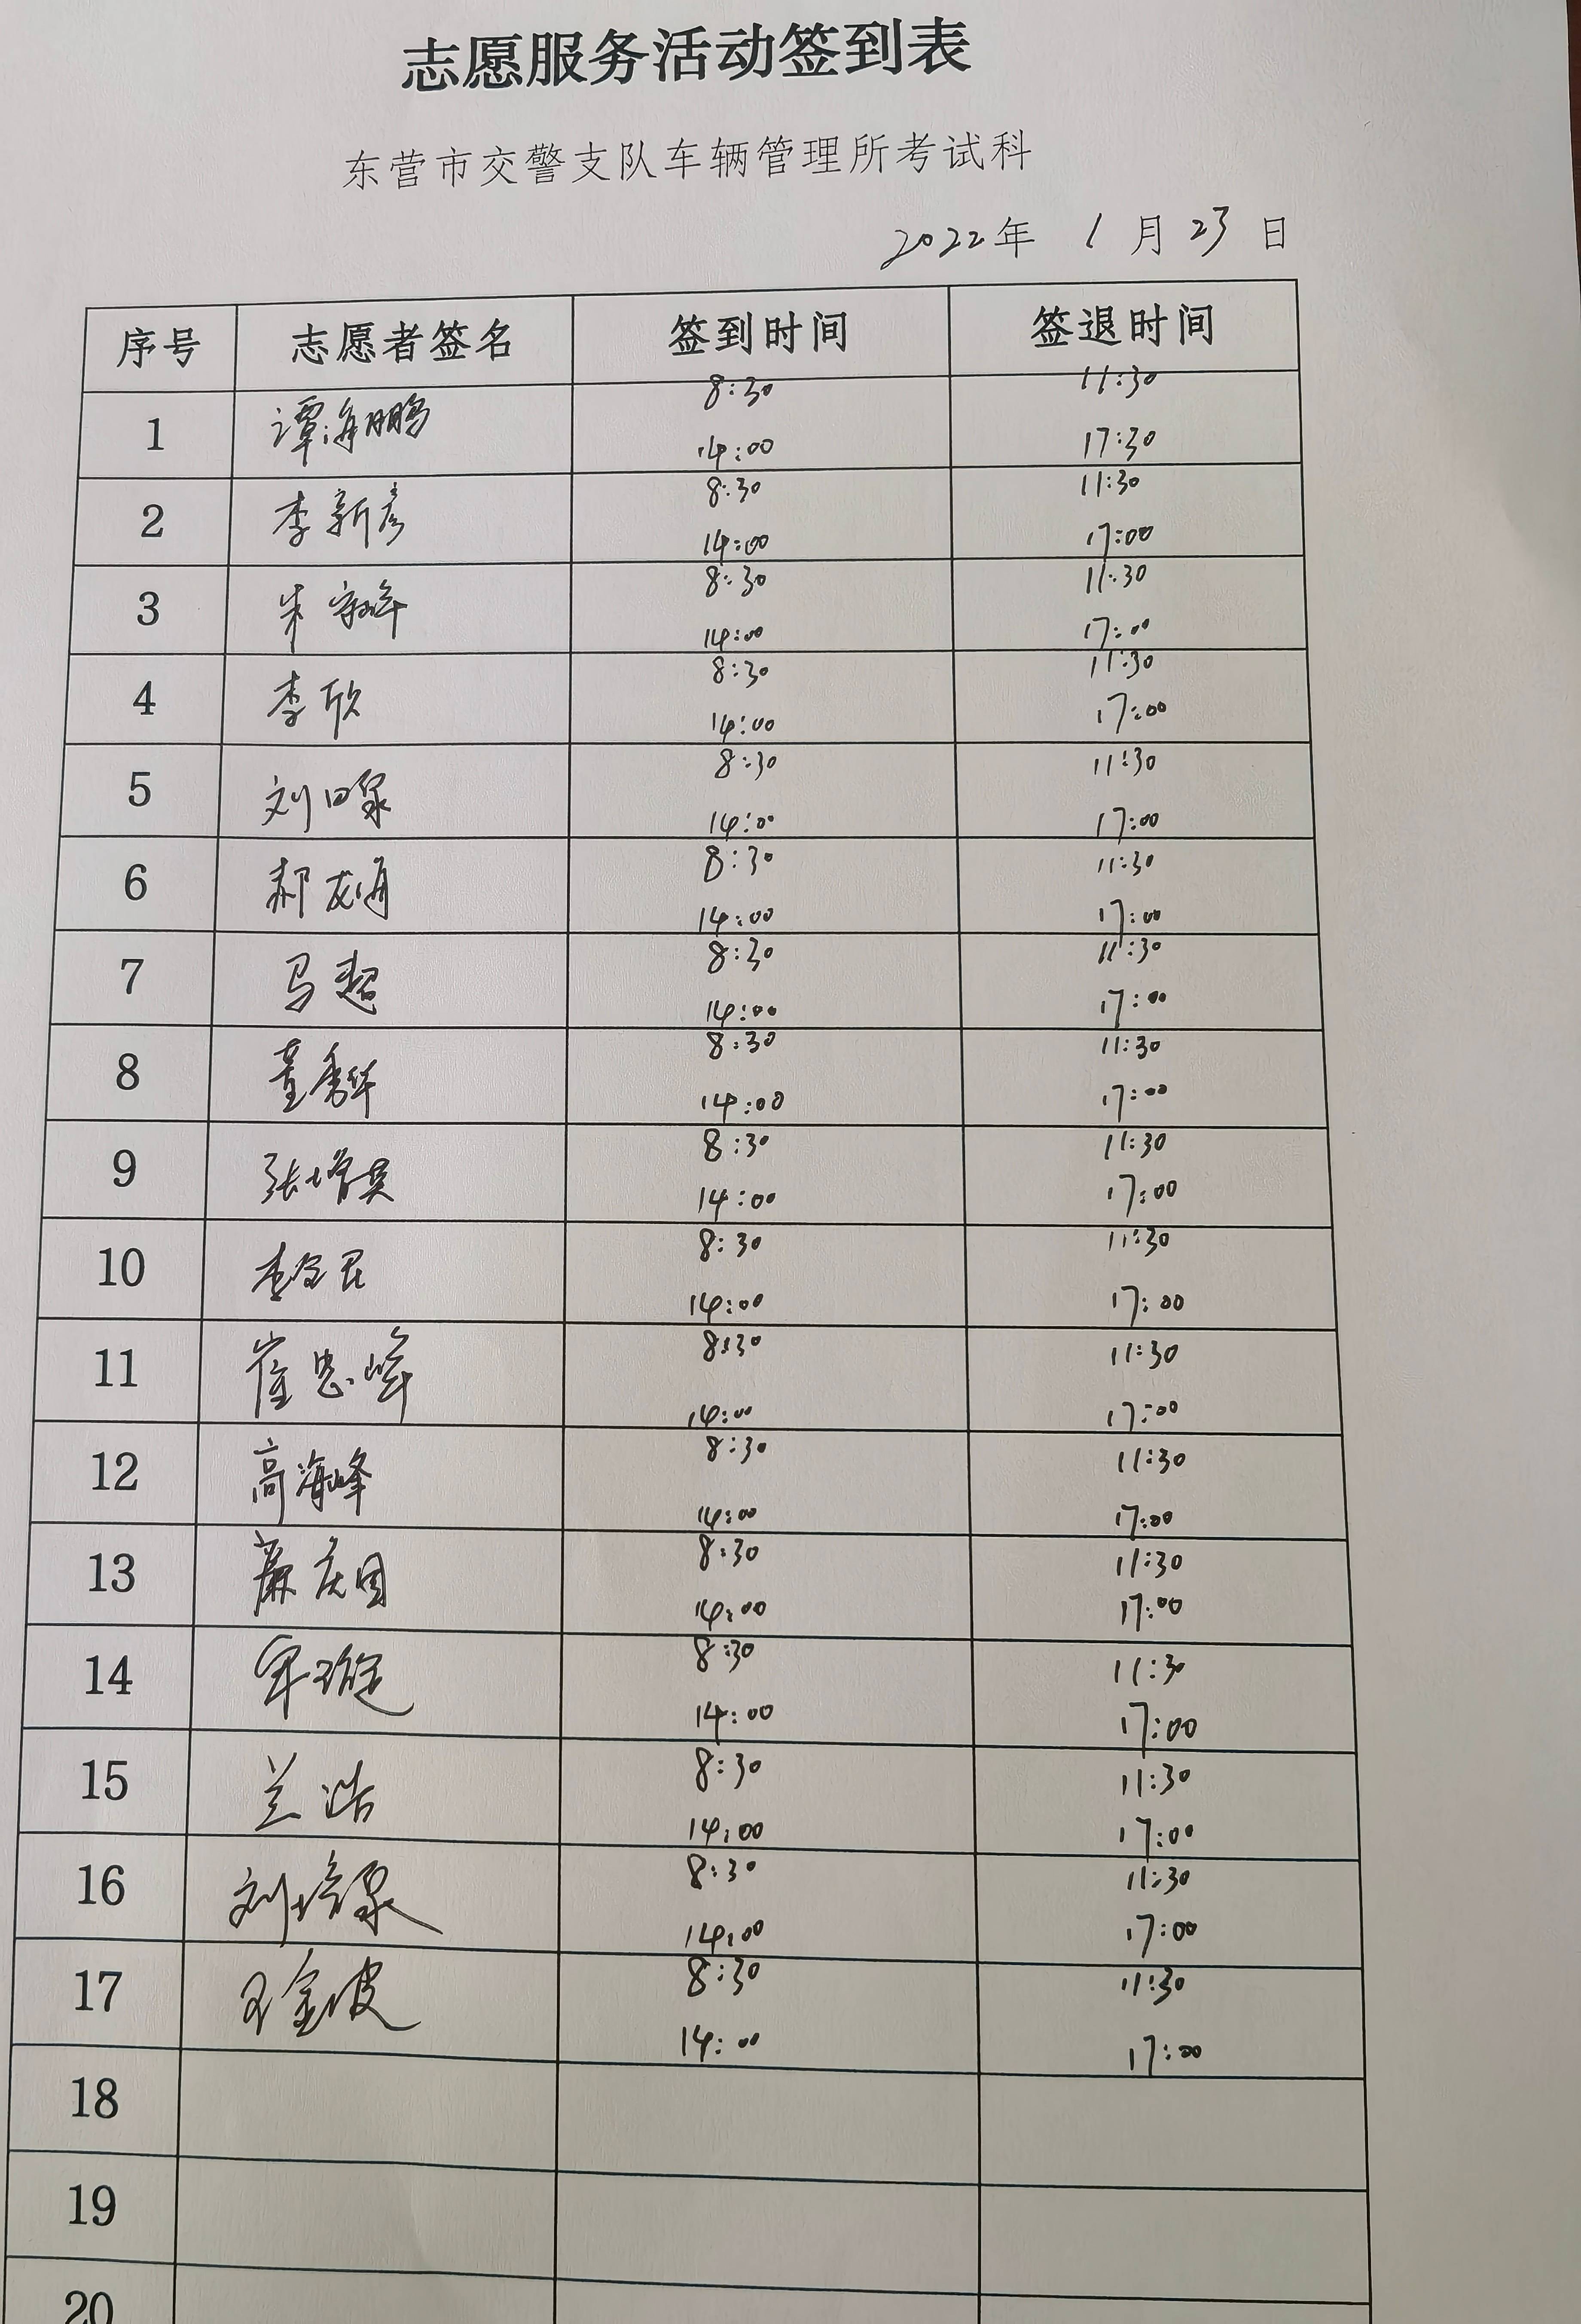 志愿服务活动签到表
东营市交警支队车辆管理所考试科
2022年 1 月 23 日
序号 志愿者签名 签到时间 签退时间
8:30 11:30
1 谭海鹏
14:00 17:30
8:30 11:30
2 李新彦
14:00 17:00
8:30 11:30
3 朱
14:00 17:00
8:30 11:30
4 李欣
14:00 17:00
8:30 11:30
5 刘
14:00 17:00
8:30 11:30
6 郝友通
14:00 17:00
8:30 11:30
7 马超
14:00 17:00
8:30 11:30
8 董秀华
14:00 17:00
8:30 11:30
9 张增
14:00 17:00
8:30 11:30
10 李
14:00 17:00
8:30 11:30
11 崔忠峰
14:00 17:00
8:30 11:30
12 高海峰
14:00 17:00
8:30 11:30
13 庆国
14:00 17:00
8:30 11:30
14
14:00 17:00
8:30 11:30
15 兰浩
14:00 17:00
8:30 11:30
16 刘培泉
14:00 17:00
8:30 11:30
17 王金波
14:00 17:00
18
19
20